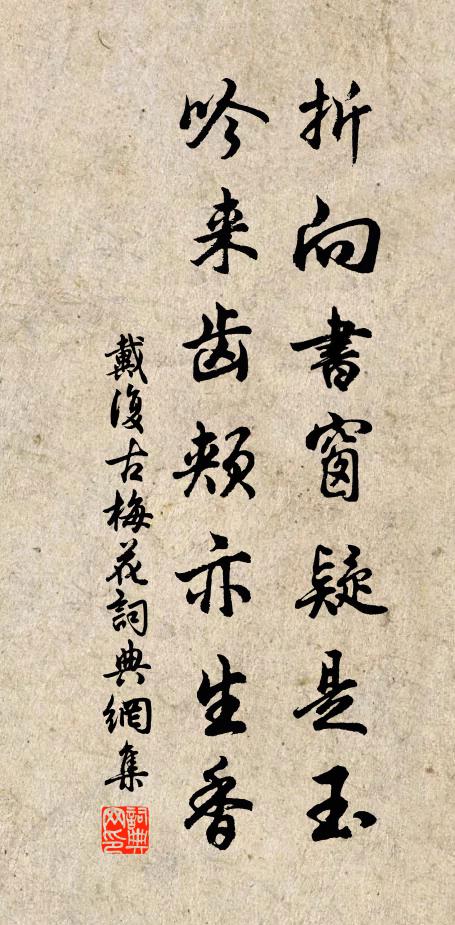 折向書窗疑是玉
吟来齿頰亦生香
戴復古梅花詞典網集
詞典网印